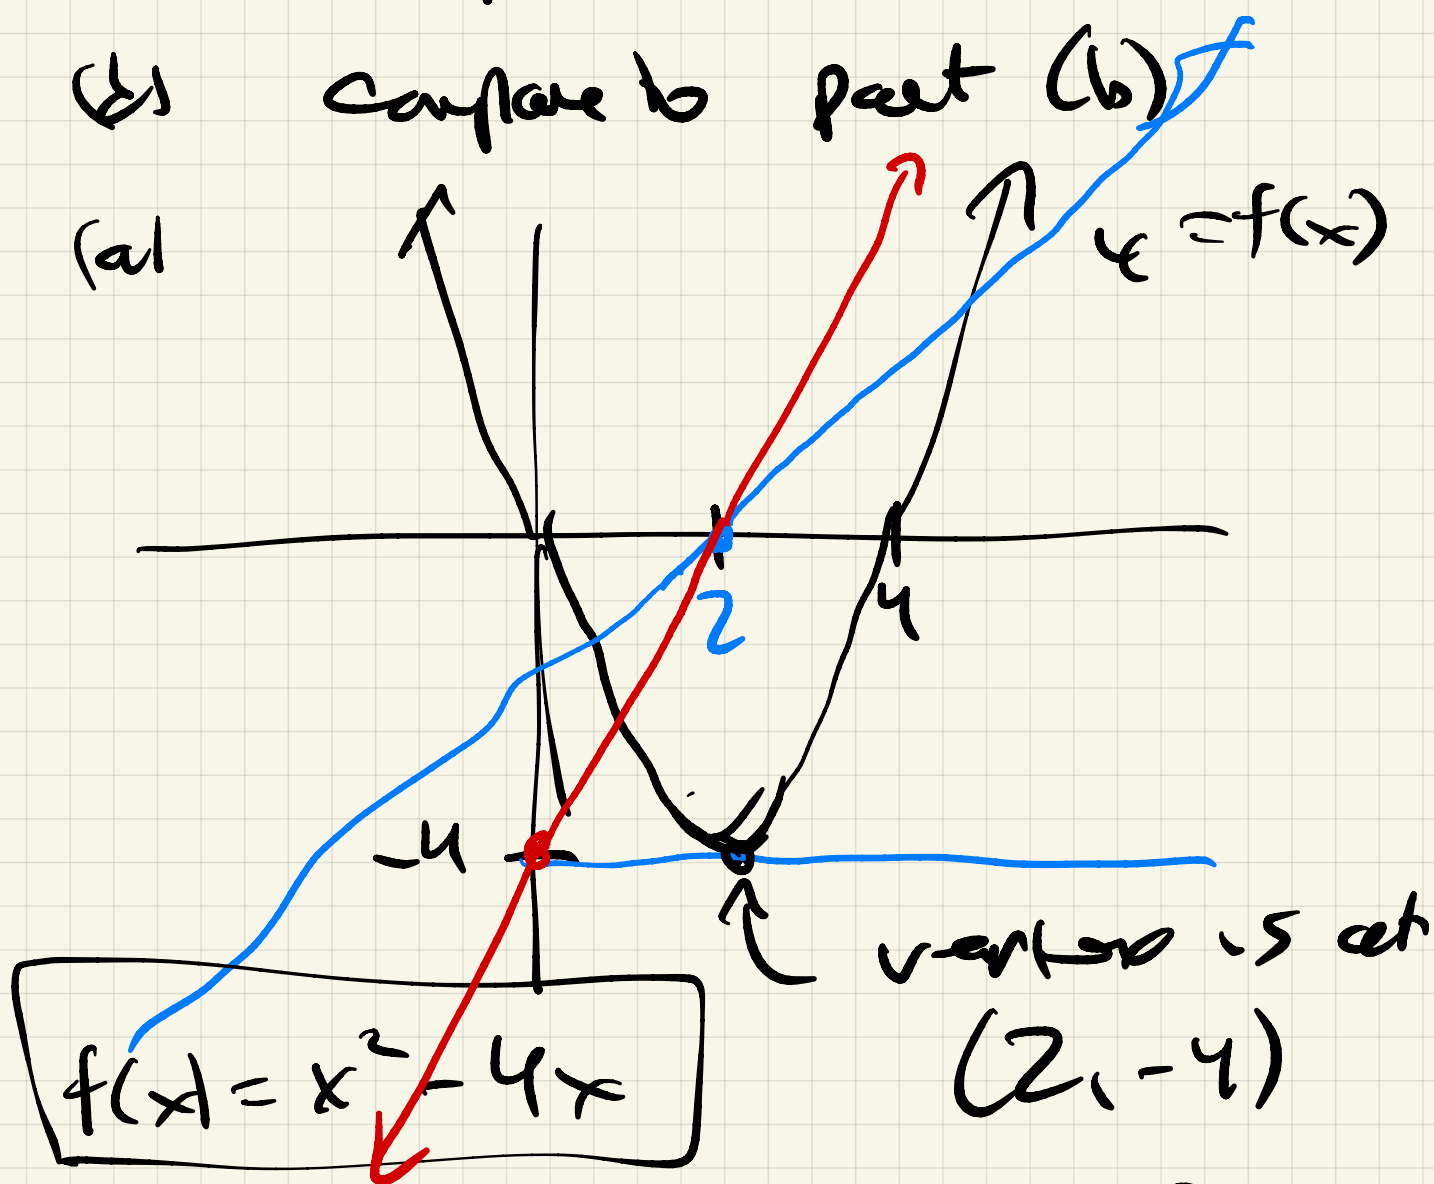 (d) Compare to part (b)
(a)
y = f(x)
2
4
-4
vertex is at
(2, -4)
f(x) = x² - 4x